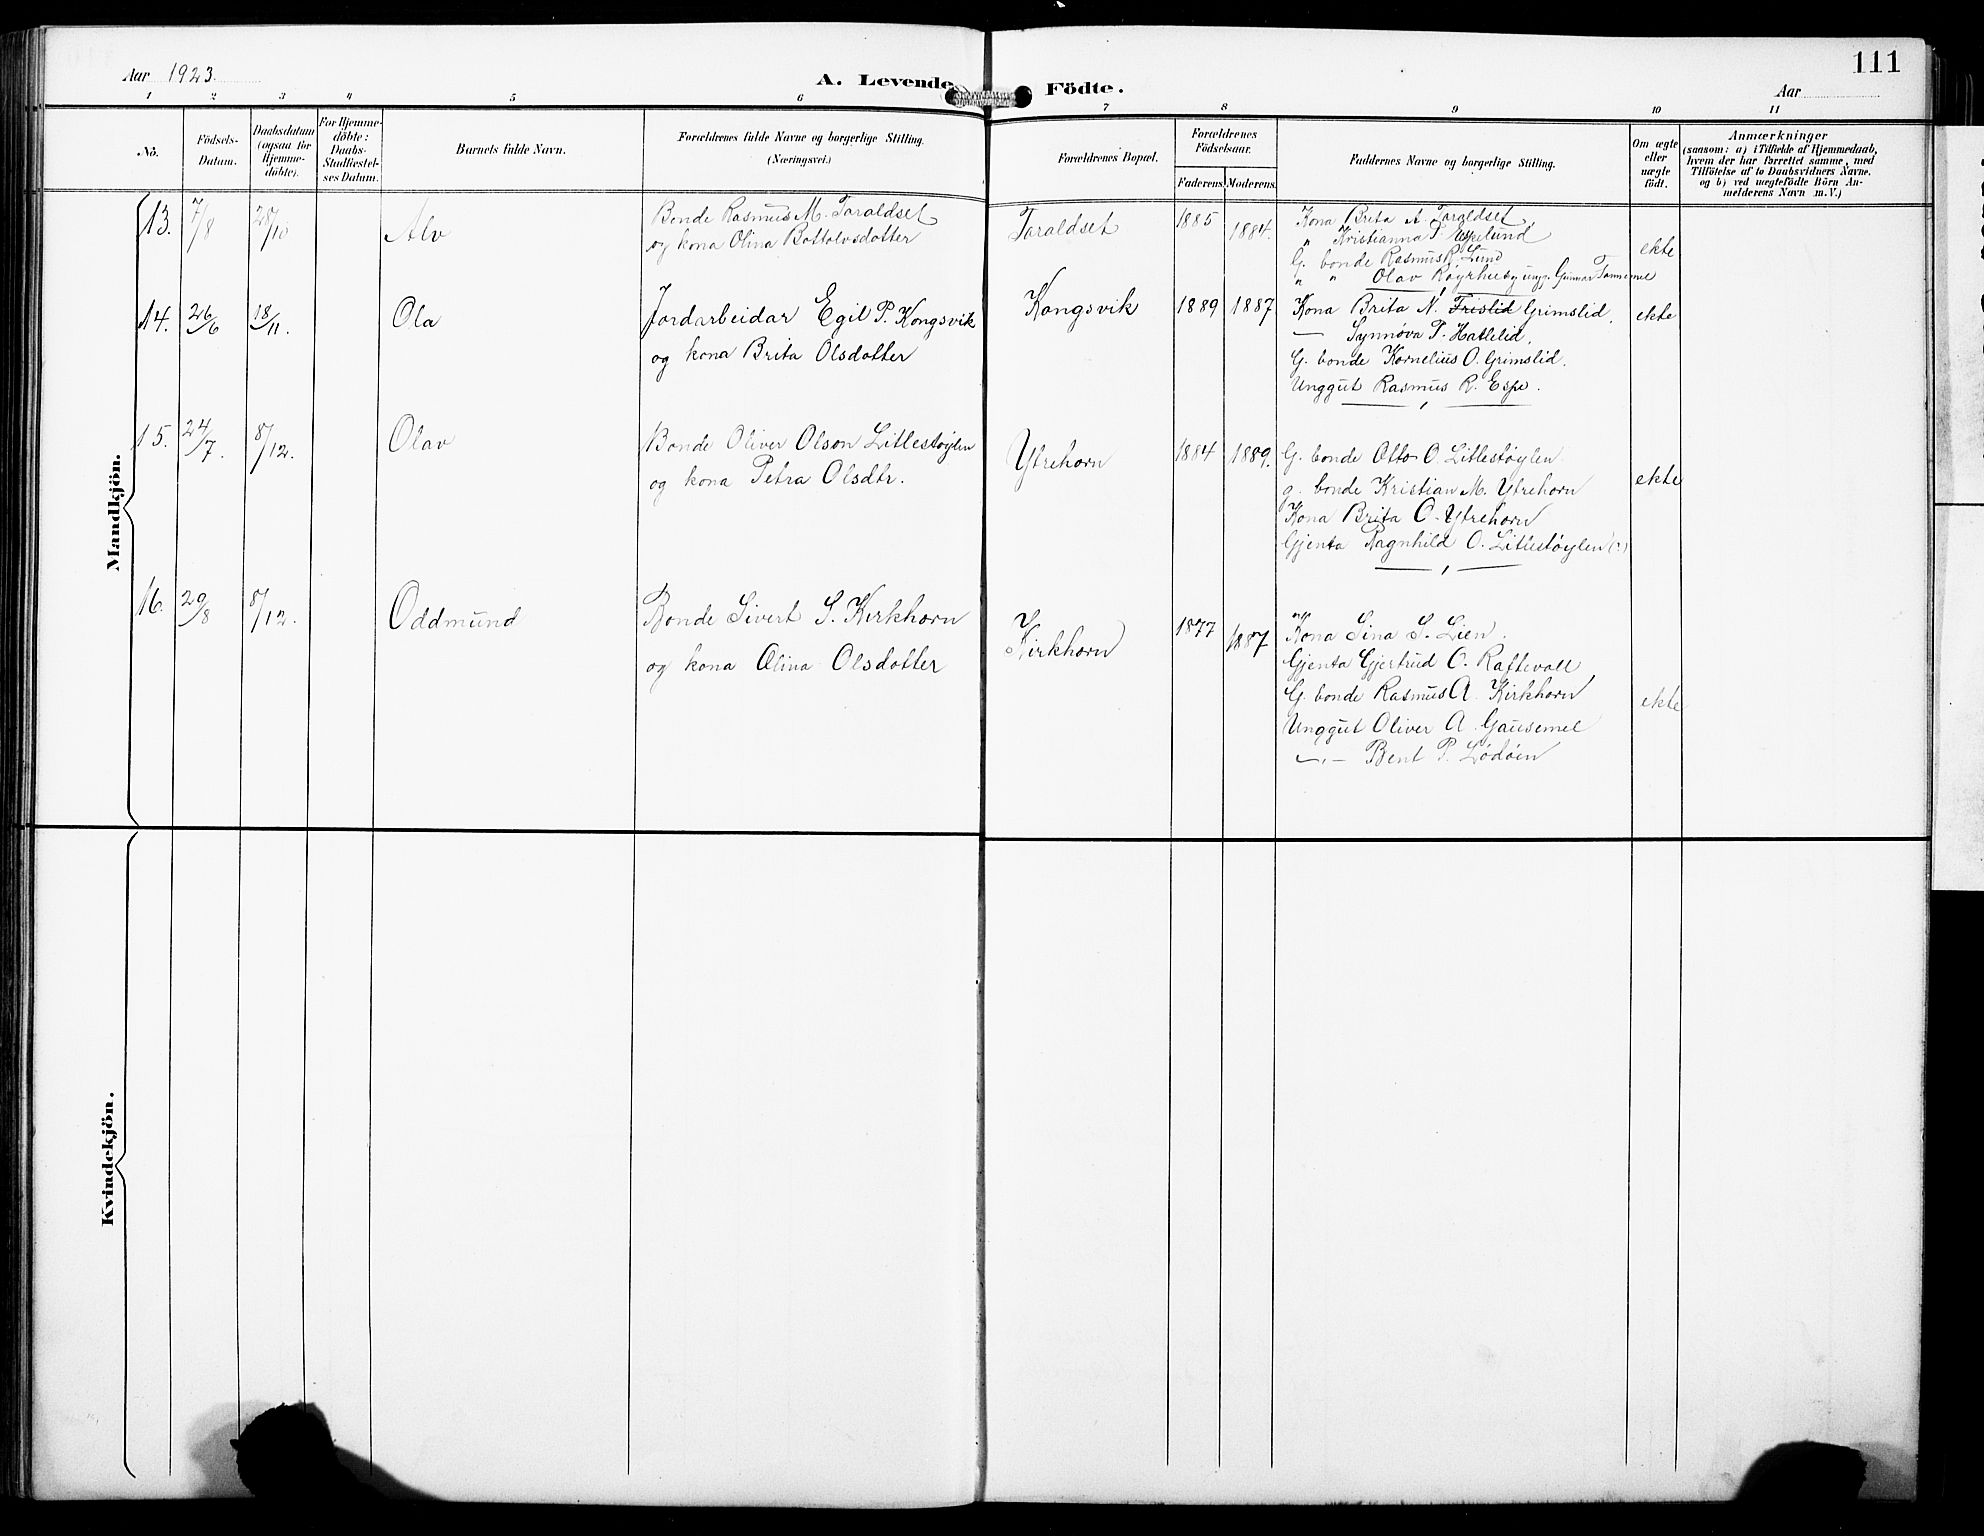 Aar 1923.
A. Levende Födte.
111
Aar
1 2 3 4 5 6 7 8 9 10 11
No.
Födsels-
Datum.
Daabsdatum
(ogsaa for
Hjemme-
döbte).
For Hjemme-
döbte:
Daabs-
Stadfæstel-
ses Datum.
Barnets fulde Navn.
Forældrenes fulde Navne og borgerlige Stilling.
(Næringsvei.)
Forældrenes Bopæl.
Forældrenes
Födselsaar.
Faderens. Moderens.
Faddernes Navne og borgerlige Stilling.
Om ægte
eller
uægte
födt.
Anmærkninger
(saasom: a) i Tilfælde af Hjemmedaab,
hvem der har forrettet samme, med
Tilföielse af to Daabsvidners Navne.
og b) ved uægtefödte Börn An-
melderens Navn m.V.)
Mandkjön.
13. 7/8 28/10 Alv
Bonde Rasmus M. Taraldset
og kona Olina Bottolvsdotter
Taraldset 1885 1884.
Kona Brita A. Taraldset
" Kristianna T. Espelund
G. bonde Rasmus R. Lund
" " Olav Røyrhus og ungg. Gunnar Tannemel
ekte
14. 26/6 18/11. Ola
Jordarbeidar Egil P. Kongsvik
og kona Brita Olsdotter
Kongsvik 1889 1887
Kona Brita N. Frislid Grimslid.
— Synnøva P. Hatlelid.
G. bonde Kornelius O. Grimslid.
Unggut Rasmus R. Espe.
ekte
15. 24/7. 8/12. Olav
Bonde Oliver Olson Litlestøylen
og kona Petra Olsdtr.
Ytrehorn 1884 1889.
G. bonde Otto O. Litlestøylen
g. bonde Kristian M. Ytrehorn
Kona Brita O. Ytrehorn
Gjenta Ragnhild O. Litlestøylen (?)
ekte
16. 29/8 8/12. Oddmund
Bonde Sivert S. Kirkhorn
og kona Olina Olsdotter
Kirkhorn 1877 1887
Kona Sina S. Lien.
Gjenta Gjertrud O. Raftevoll
G. bonde Rasmus A. Kirkhorn
Unggut Oliver A. Gausemel
—„— Bent P. Lødøen
ekte
Kvindekjön.